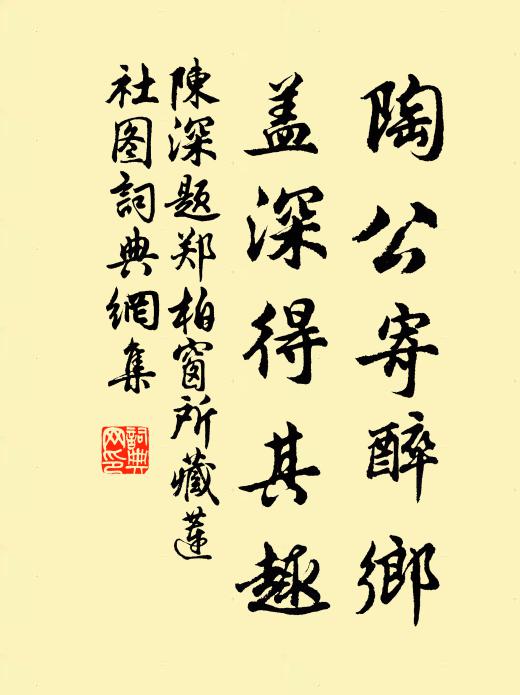 陶公寄醉鄉
盖深得其趣
陳深题郑柏窗所藏蓮
社图詞典網集
詞典网印